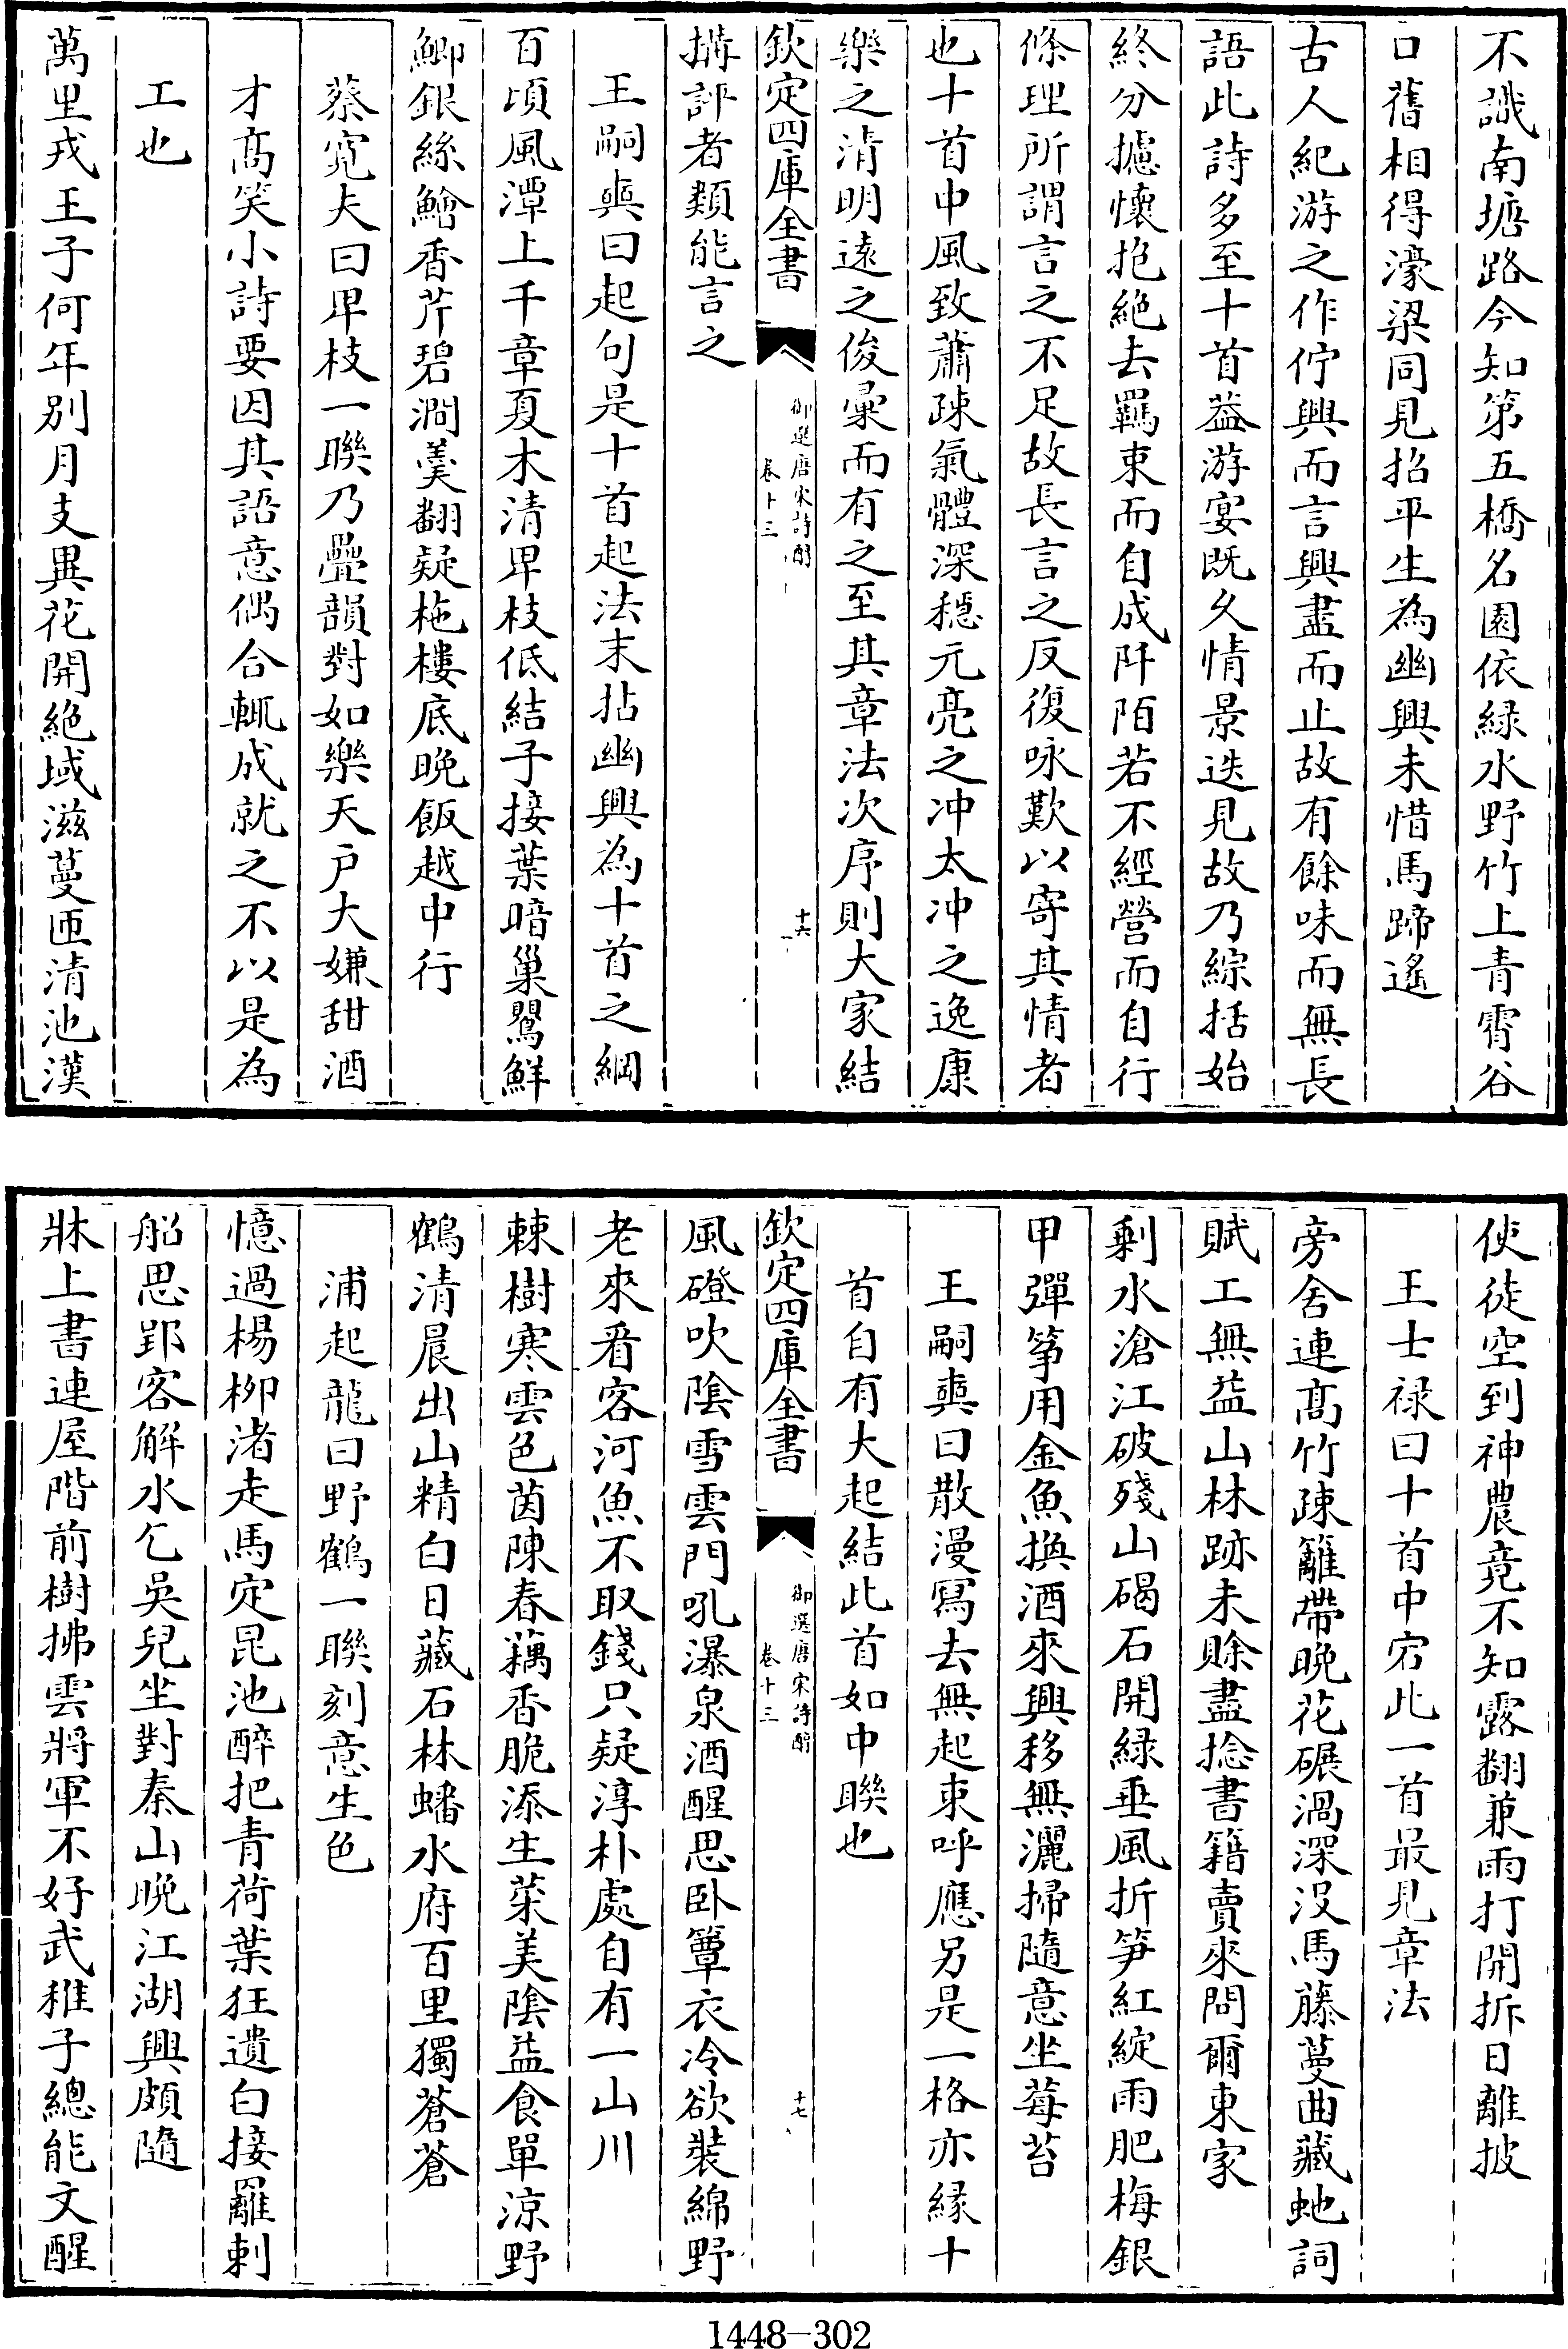 不識南塘路今知第五橋名園依緑水野竹上青霄谷
口舊相得濠梁同見招平生為幽興未惜馬蹄遙
古人紀游之作佇興而言興盡而止故有餘味而無長
語此詩多至十首葢游宴既久情景迭見故乃綜括始
終分攄懷抱絶去羈束而自成阡陌若不經營而自行
條理所謂言之不足故長言之反復咏歎以寄其情者
也十首中風致蕭疎氣體深穩元亮之冲太冲之逸康
樂之清明遠之俊彚而有之至其章法次序則大家結
欽定四庫全書
御選唐宋詩醇
卷十三
十六
搆評者類能言之
王嗣奭曰起句是十首起法末拈幽興為十首之綱
百頃風潭上千章夏木清卑枝低結子接葉暗巢鸎鮮
鯽銀絲鱠香芹碧澗羹翻疑柂樓底晚飯越中行
蔡寛夫曰卑枝一聯乃疊韻對如樂天户大嫌甜酒
才髙笑小詩要因其語意偶合輒成就之不以是為
工也
萬里戎王子何年别月支異花開絶域滋蔓匝清池漢
使徒空到神農竟不知露翻兼雨打開拆日離披
王士禄曰十首中宕此一首最見章法
旁舍連髙竹疎籬帶晚花碾渦深没馬藤蔓曲藏虵詞
賦工無益山林跡未賖盡捻書籍賣來問爾東家
剩水滄江破殘山碣石開緑垂風折笋紅綻雨肥梅銀
甲彈筝用金魚換酒來興移無灑掃隨意坐莓苔
王嗣奭曰散漫寫去無起束呼應另是一格亦縁十
首自有大起結此首如中聯也
欽定四庫全書
御選唐宋詩醇
卷十三
十七
風磴吹陰雪雲門吼瀑泉酒醒思卧簟衣冷欲裝綿野
老來看客河魚不取錢只疑淳朴處自有一山川
棘樹寒雲色茵陳春藕香脆添生菜美陰益食單涼野
鶴清晨出山精白日藏石林蟠水府百里獨蒼蒼
浦起龍曰野鶴一聯刻意生色
憶過楊栁渚走馬定昆池醉把青荷葉狂遺白接䍦刺
船思郢客解水乞吳兒坐對秦山晚江湖興頗隨
牀上書連屋階前樹拂雲將軍不好武稚子總能文醒
1448-302